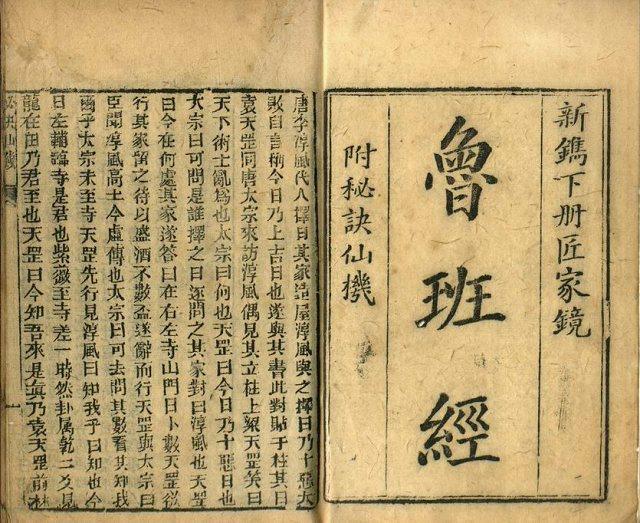 新鐫下册匠家鏡
魯班經
附秘訣仙機
唐李淳風代人擇日其家造屋淳風與之擇日乃十惡大
敗日自稱今日乃上吉日也遂與其書此對貼于柱其日
袁天罡同唐太宗來訪淳風偶見其立柱上梁天罡笑曰
天下術士亂爲也太宗曰何也天罡曰今日乃十惡日也
太宗曰可問是誰擇之日逐問之其家對曰淳風也天罡
曰今在何處其家遂答曰在右左寺山門日卜數天罡從
行其家畱之待以盛酒不數盃遂辭而行天罡與太宗曰
臣聞淳風高士今虛傳也太宗曰可去問其數看其知我
乎太宗未至寺天罡先行見淳風曰知我乎曰知也今
日左輔臨寺是君也紫薇至寺差一時然卦属乾二爻見
龍在田乃君至也天罡曰今知吾來是眞乃袁天罡前